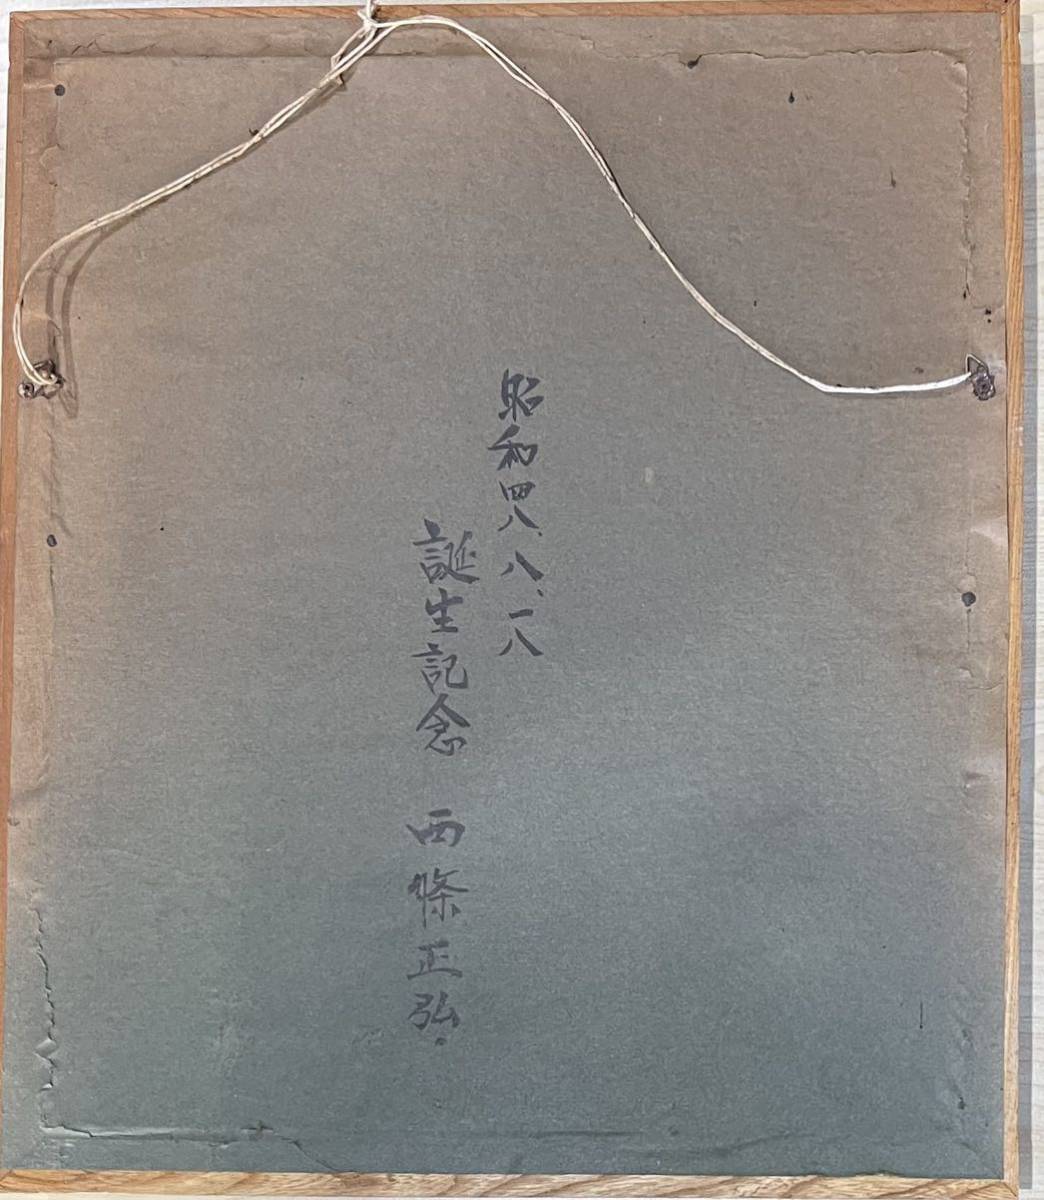 昭和四八、八、一八
誕生記念 西條正弘